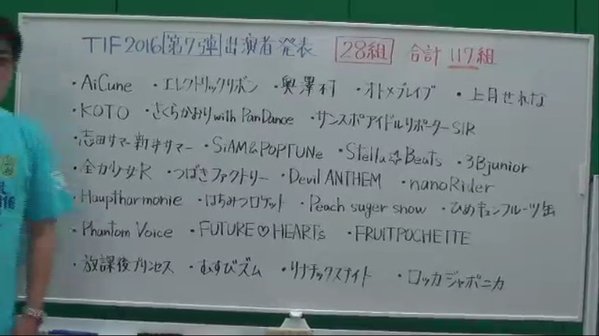 TIF2016 第7弾 出演者発表 28組 合計117組
・AiCune ・エレクトリックリボン ・奥澤村 ・オトメブレイブ ・上月せれな
・KOTO ・さくらかおり with PanDance ・サンスポアイドルリポーターSIR
・志田サマー新井サマー ・SiAM&POPTUNe ・Stella☆Beats ・3Bjunior
・全力少女R ・つばきファクトリー ・Devil ANTHEM ・nanoRider
・Hauptharmonie ・はちみつロケット ・Peach suger snow ・ひめキュンフルーツ缶
・Phantom Voice ・FUTURE♡HEARTs ・FRUITPOCHETTE
・放課後プリンセス ・むすびズム ・リナチックステイト ・ロッカジャポニカ